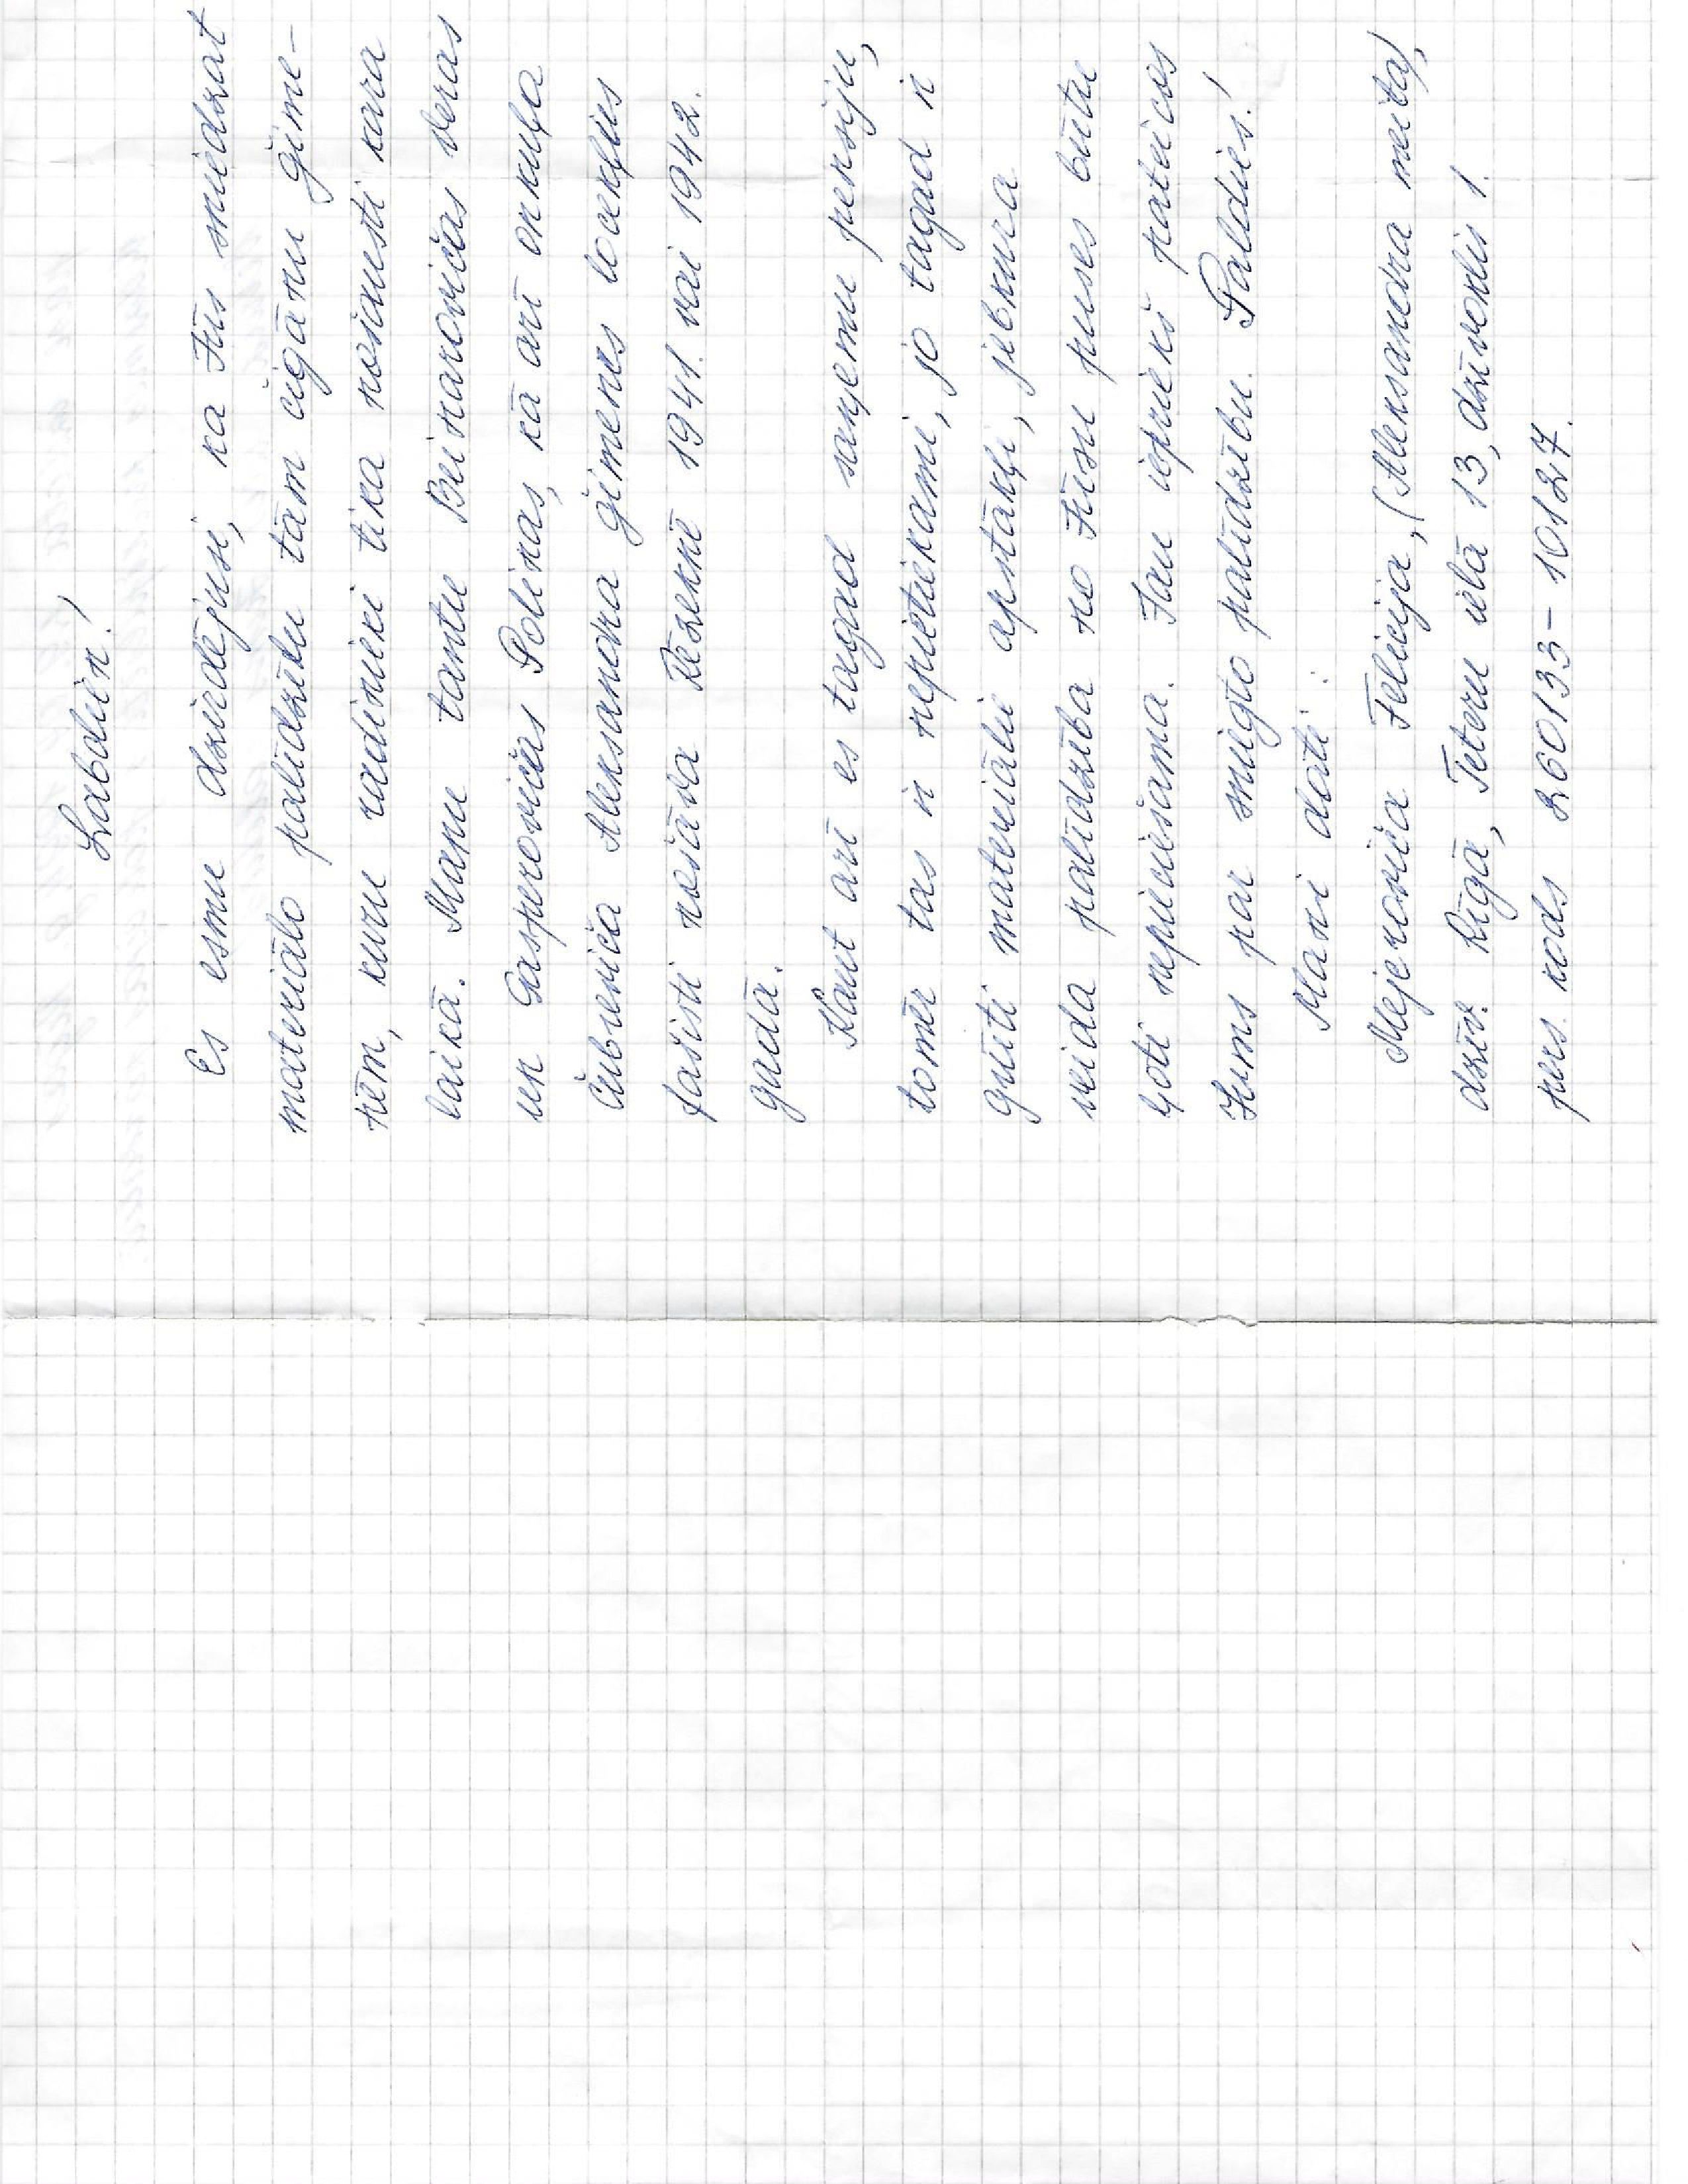 Labdien!
Es esmu dzirdējusi, ka Jūs sniedzat
materiālo palīdzību tām čigānu ģime-
nēm, kuru radinieki tika nošauti kara
laikā. Manu tantu Beinarovičas Veras
un Gasperovičas Polinas, kā arī onkuļa
Čubreviča Aleksandra ģimenes locekļus
fašisti nošāva Rēzeknē 1941. vai 1942.
gadā.
Kaut arī es tagad saņemu pensiju,
tomēr tas ir nepietiekami, jo tagad ir
grūti materiālie apstākļi, jebkura
veida palīdzība no Jūsu puses būtu
ļoti nepieciešama. Jau iepriekš pateicos
Jums par sniegto palīdzību. Paldies!
Mani dati:
Mejeroviča Felicija, (Aleksandra meita),
dzīv. Rīgā, Teteru ielā 13, dzīvoklis 1.
pers. kods 260133-10127.